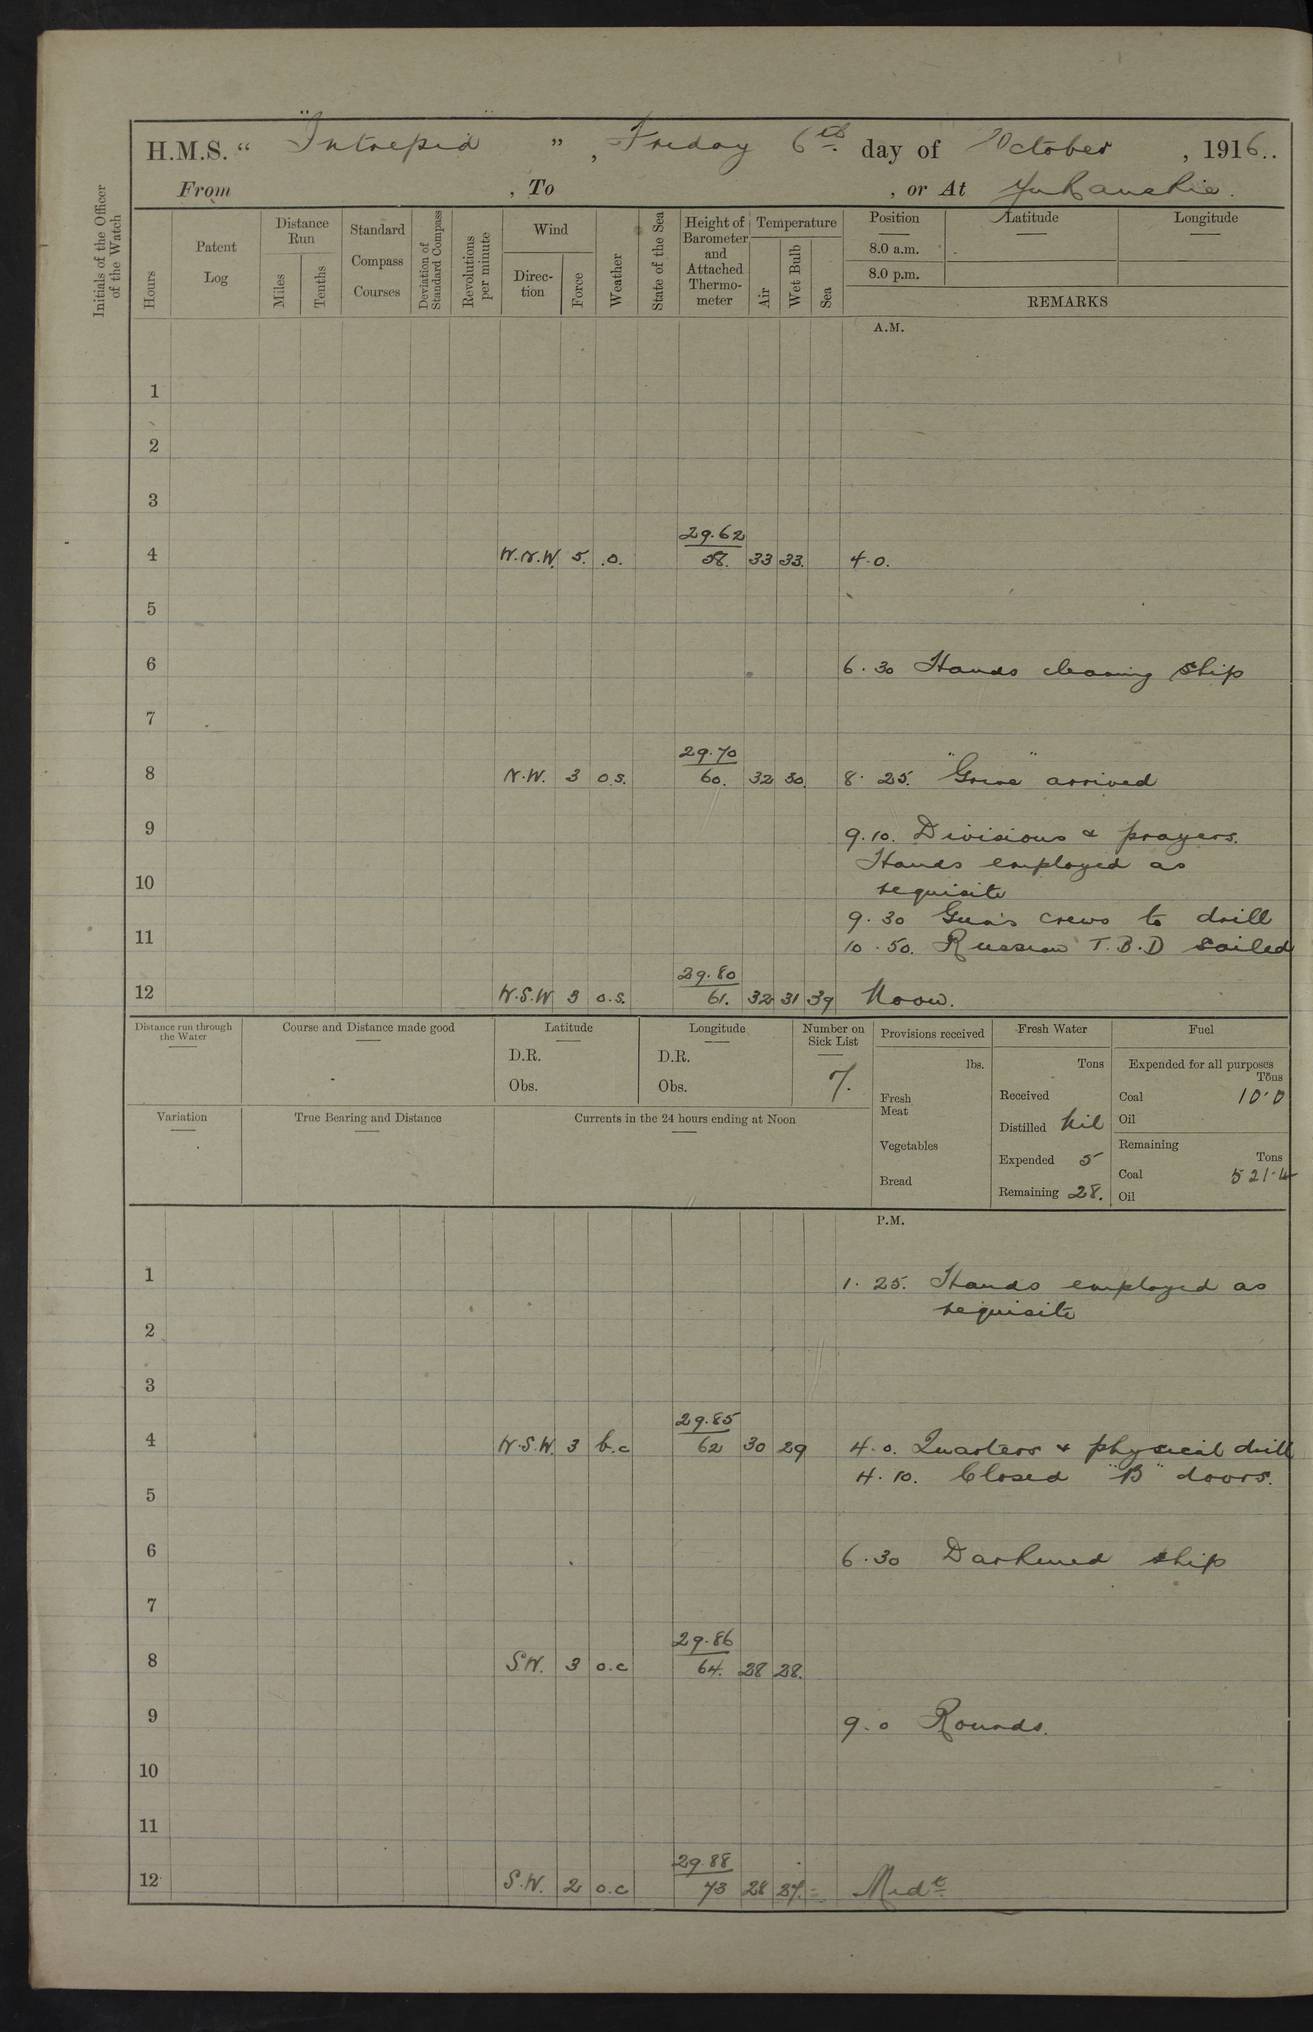 H.M.S. " "Intrepid" ", Friday 6th day of October, 1916..
From , To , or At Yukanskie.
Initials of the Officer of the Watch
Hours
Patent Log
Distance Run
Miles
Tenths
Standard Compass Courses
Deviation of Standard Compass
Revolutions per minute
Wind
Direc-tion
Force
Weather
State of the Sea
Height of Barometer and Attached Thermo-meter
Temperature
Air
Wet Bulb
Sea
Position Latitude Longitude
8.0 a.m.
8.0 p.m.
REMARKS
A.M.
1
2
3
29.62
4 W.N.W. 5. .o. 58. 33 33. 4.0.
5
6 6.30 Hands cleaning ship
7
29.70
8 N.W. 3 o.s. 60. 32 30. 8.25. "Grive" arrived
9 9.10. Divisions & prayers.
Hands employed as
10 requisite
9.30 Gun's crews to drill
11 10.50. Russian T.B.D sailed
29.80
12 W.S.W 3 o.s. 61. 32 31 39 Noon.
Distance run through the Water
Course and Distance made good
Latitude
D.R.
Obs.
Longitude
D.R.
Obs.
Number on Sick List
7.
Provisions received
lbs.
Fresh Meat
Vegetables
Bread
Fresh Water
Tons
Received
Distilled Nil
Expended 5
Remaining 28.
Fuel
Expended for all purposes
Tons
Coal 10.0
Oil
Remaining
Tons
Coal 521.4
Oil
Variation
True Bearing and Distance
Currents in the 24 hours ending at Noon
P.M.
1 1.25. Hands employed as
requisite
2
3
29.85
4 W.S.W. 3 b.c 62 30 29 4.0. Quarters & physical drill
4.10. Closed "B" doors.
5
6 6.30 Darkened ship
7
29.86
8 S.W. 3 o.c 64. 28 28.
9 9.0 Rounds.
10
11
29.88
12 S.W. 2 o.c 73 28 27. Midt